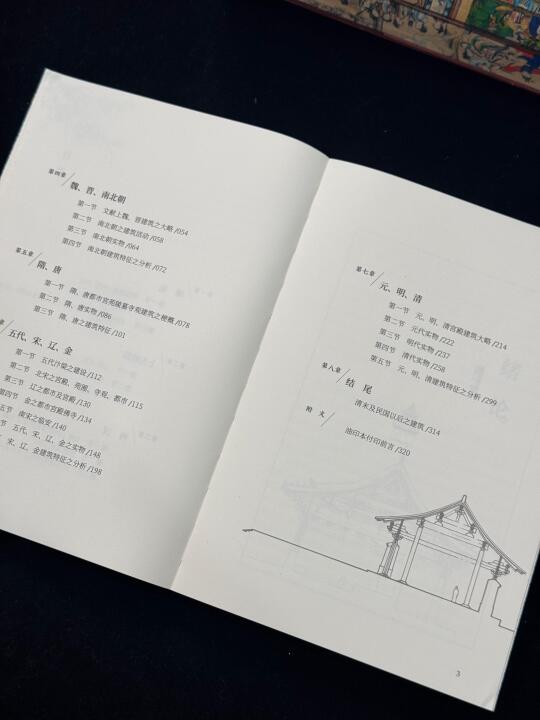 第四章
魏、晋、南北朝
第一节 文献上魏、晋建筑之大略 /054
第二节 南北朝之建筑活动 /058
第三节 南北朝实物 /064
第四节 南北朝建筑特征之分析 /072
第五章
隋、唐
第一节 隋、唐都市宫苑陵墓寺观建筑之梗概 /078
第二节 隋、唐实物 /086
第三节 隋、唐之建筑特征 /101
章
五代、宋、辽、金
第一节 五代汴梁之建设 /112
第二节 北宋之宫殿、苑囿、寺观、都市 /115
第三节 辽之都市及宫殿 /130
第四节 金之都市宫殿佛寺 /134
五节 南宋之临安 /140
节 五代、宋、辽、金之实物 /148
、宋、辽、金建筑特征之分析 /198
第七章
元、明、清
第一节 元、明、清宫殿建筑大略 /214
第二节 元代实物 /222
第三节 明代实物 /237
第四节 清代实物 /258
第五节 元、明、清建筑特征之分析 /299
第八章
结 尾
清末及民国以后之建筑 /314
附 文
油印本付印前言 /320
3